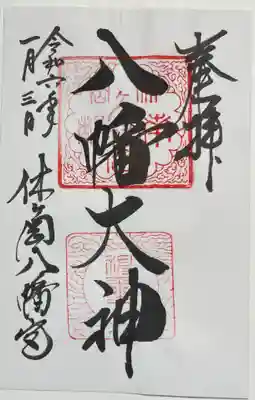 奉拝
八幡大神
令和六年
一月三日
休岡八幡宮